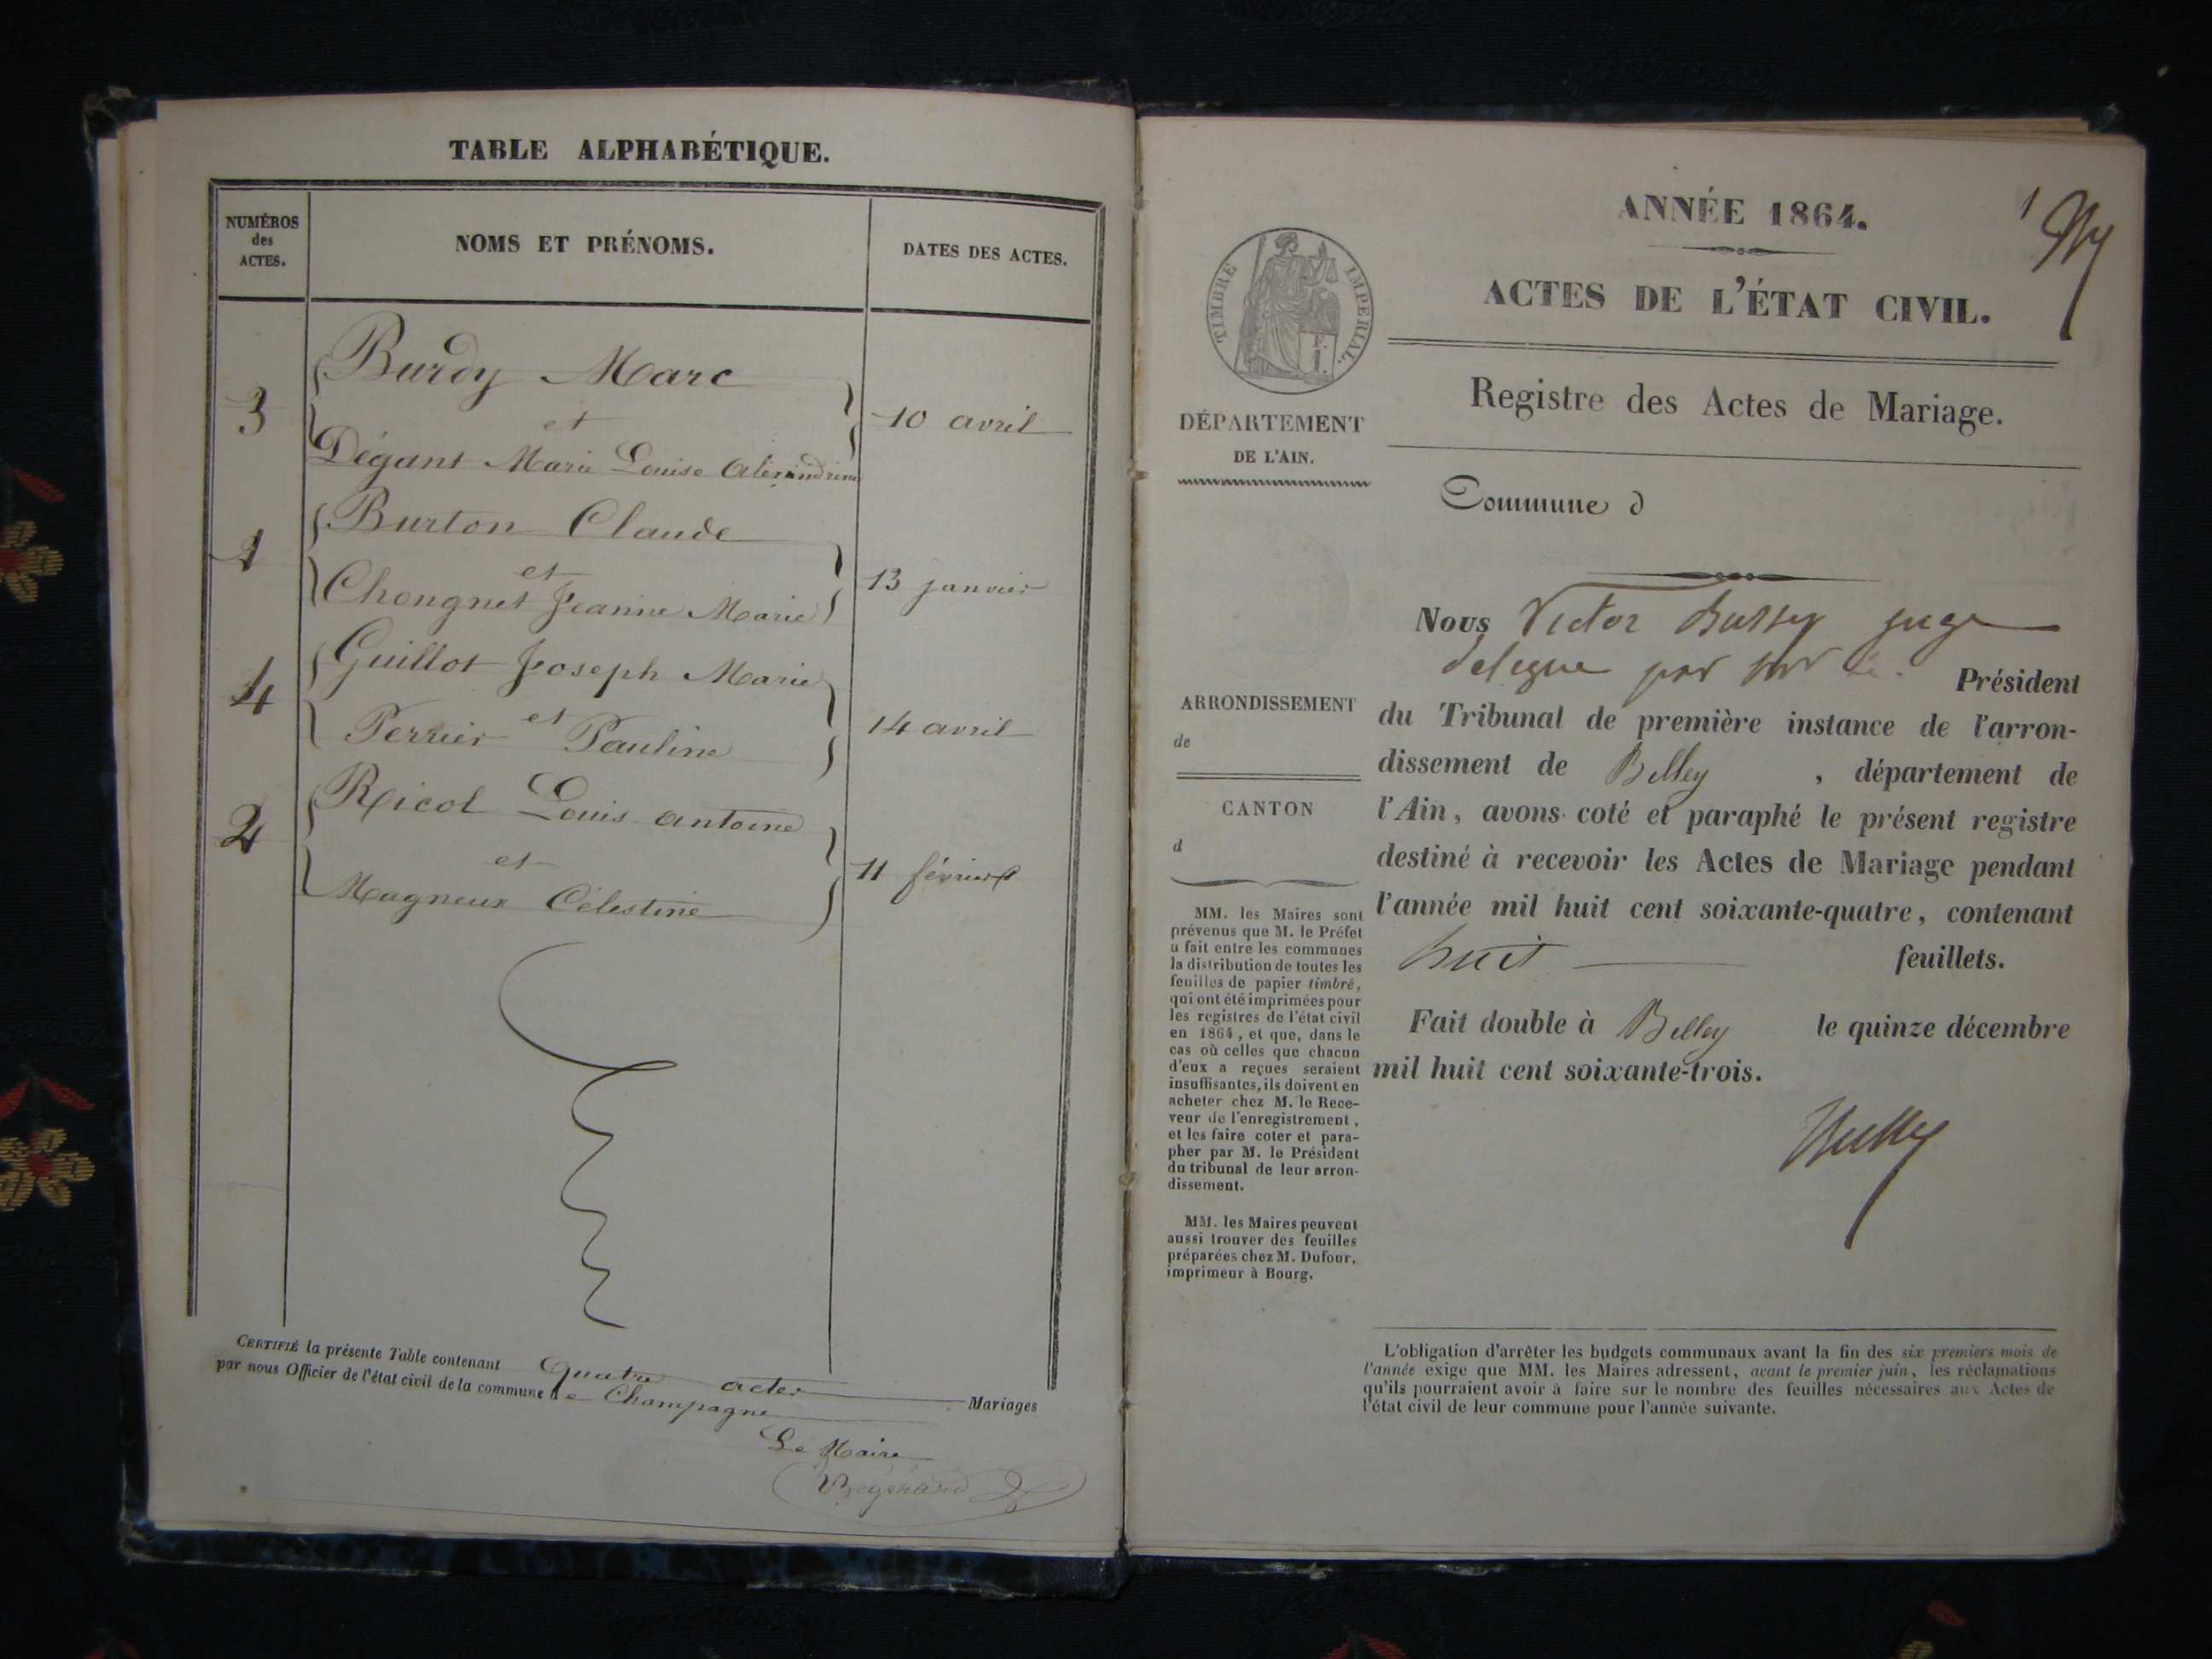 TABLE ALPHABÉTIQUE.
NUMÉROS
des
ACTES.
NOMS ET PRÉNOMS.
DATES DES ACTES.
Burdy Marc
3
et
10 avril
Dégant Marie Louise Alexandrine
Burton Claude
1
et
13 janvier
Chongnet Jeanne Marie
Guillot Joseph Marie
4
et
14 avril
Perrier Pauline
Ricol Louis antoine
2
et
11 février
Magneux Célestine
CERTIFIÉ la présente Table contenant Quatre actes Mariages
par nous Officier de l'état civil de la commune de Champagne
Le Maire
ANNÉE 1864.
1
ACTES DE L'ÉTAT CIVIL.
Registre des Actes de Mariage.
TIMBRE IMPERIAL.
DÉPARTEMENT
DE L'AIN.
Commune d
Nous Victor juge
délégué par Président
du Tribunal de première instance de l'arron-
dissement de Belley , département de
l'Ain, avons coté et paraphé le présent registre
destiné à recevoir les Actes de Mariage pendant
l'année mil huit cent soixante-quatre, contenant
huit feuillets.
Fait double à Belley le quinze décembre
mil huit cent soixante-trois.
ARRONDISSEMENT
de
CANTON
d
MM. les Maires sont
prévenus que M. le Préfet
a fait entre les communes
la distribution de toutes les
feuilles de papier timbré,
qui ont été imprimées pour
les registres de l'état civil
en 1864, et que, dans le
cas où celles que chacun
d'eux a reçues seraient
insuffisantes, ils doivent en
acheter chez M. le Rece-
veur de l'enregistrement,
et les faire coter et para-
pher par M. le Président
du tribunal de leur arron-
dissement.
MM. les Maires peuvent
aussi trouver des feuilles
préparées chez M. Dufour,
imprimeur à Bourg.
L'obligation d'arrêter les budgets communaux avant la fin des six premiers mois de
l'année exige que MM. les Maires adressent, avant le premier juin, les réclamations
qu'ils pourraient avoir à faire sur le nombre des feuilles nécessaires aux Actes de
l'état civil de leur commune pour l'année suivante.